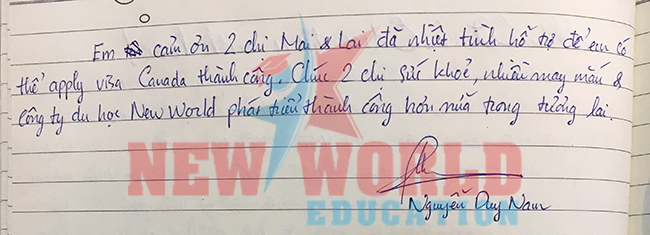 Em cảm ơn 2 chị Mai & Lai đã nhiệt tình hỗ trợ để em có
thể apply visa Canada thành công. Chúc 2 chị sức khoẻ, nhiều may mắn &
công ty du học New World phát triển thành công hơn nữa trong tương lai.
NEW WORLD
EDUCATION
Nguyễn Duy Nam